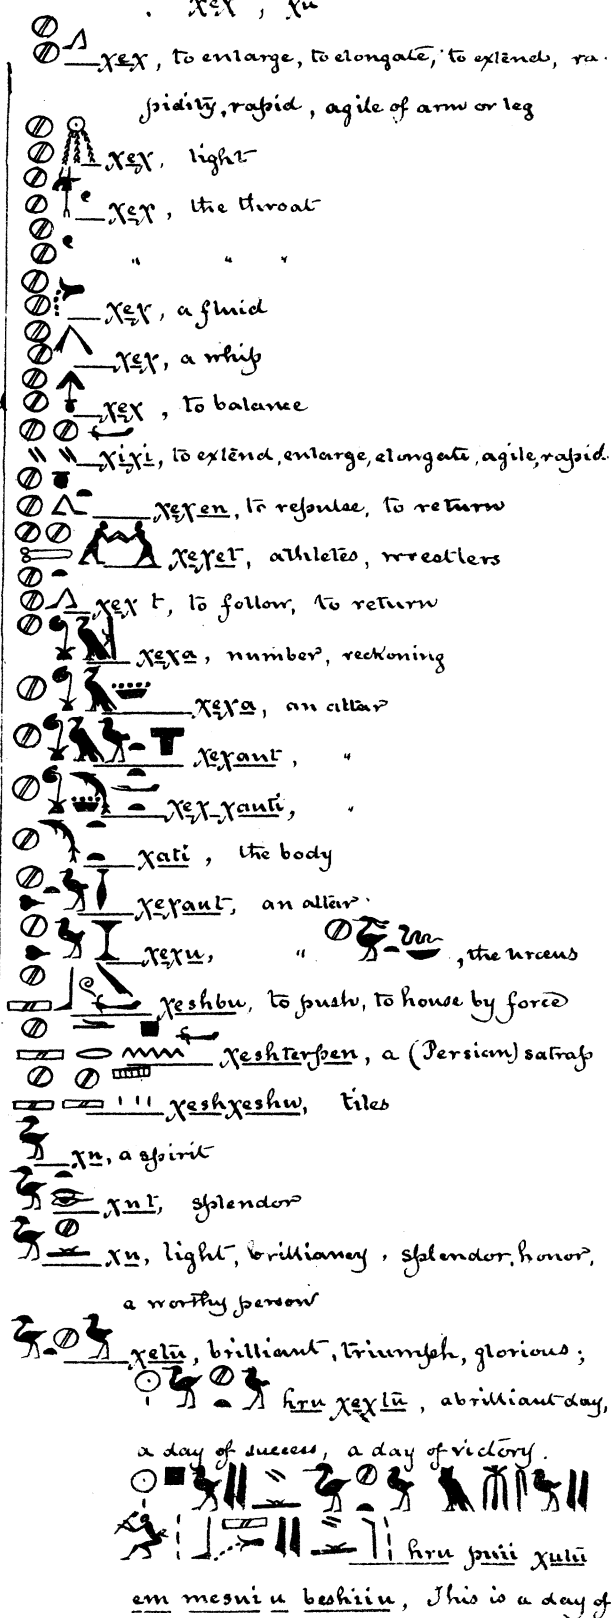 χeχ, χu
χeχ, to enlarge, to elongate, to extend, ra-
pidity, rapid, agile of arm or leg
χeχ, light
χeχ, the throat
" " "
χeχ, a fluid
χeχ, a whip
χeχ, to balance
χiχi, to extend, enlarge, elongate, agile, rapid.
χeχen, to repulse, to return
χeχet, athletes, wrestlers
χeχ t, to follow, to return
χeχa, number, reckoning
χeχa, an altar
χeχaut, "
χeχ-χauti, "
χati, the body
χeχaut, an altar
χeχu, " , the uræus
χeshbu, to push, to house by force
χeshterpen, a (Persian) satrap
χeshχeshu, tiles
χu, a spirit
χut, splendor
χu, light, brilliancy, splendor, honor,
a worthy person
χetū, brilliant, triumph, glorious;
hru χeχtū, a brilliant day,
a day of success, a day of victory.
hru puii χutū
em mesui u beshiiu, This is a day of